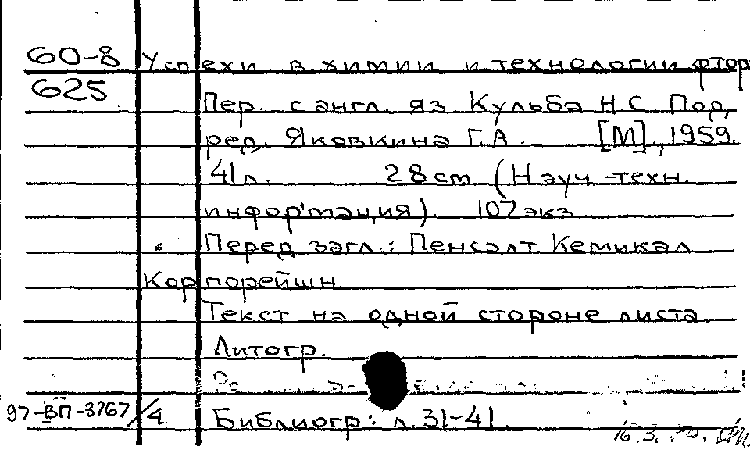 60-8 Успехи в химии и технологии фтор
625
Пер. с англ. яз Кульба Н С Под
ред. Яковкина Г.А. [М], 1959.
41л. 28 cm (Науч-техн.
информация) 107 экз
Перед загл.: Пенсалт Кемикал
Корпорейшн
Текст на одной стороне листа
Литогр.
97-ВП-3767/4 Библиогр: л. 31-41.